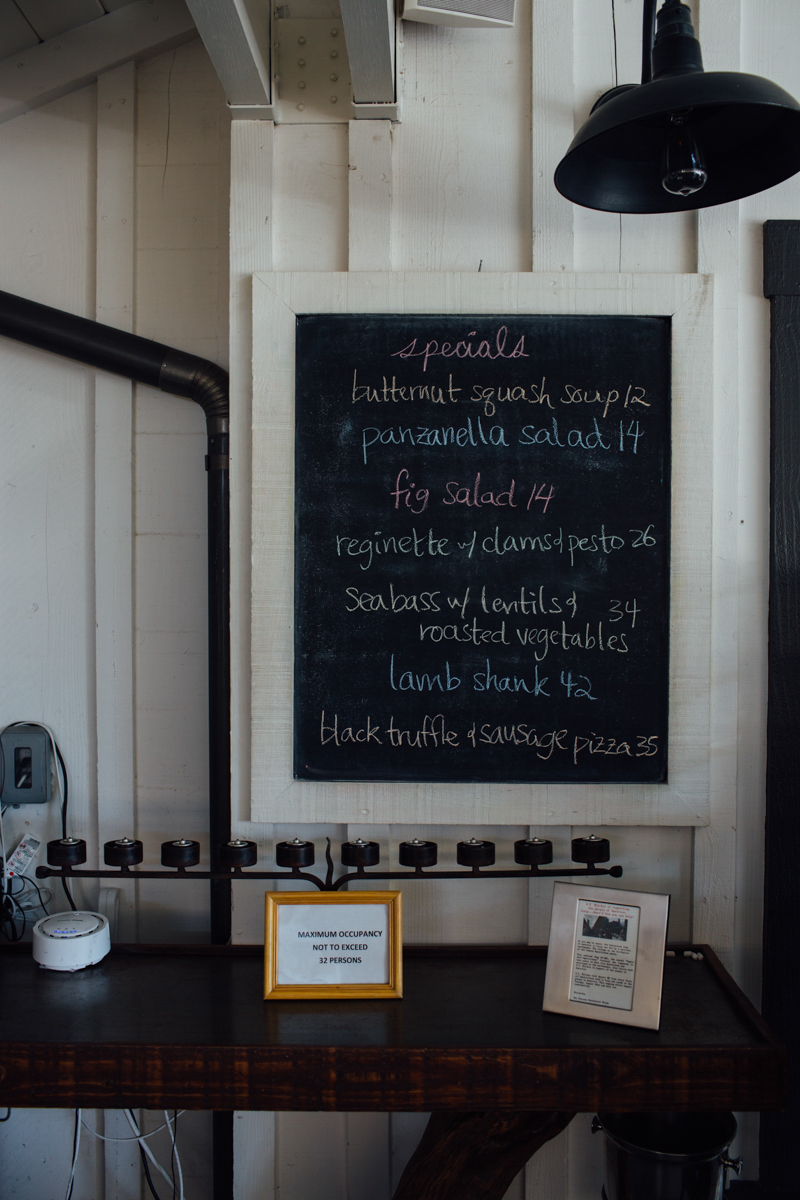 specials
butternut squash soup 12
panzanella salad 14
fig salad 14
reginette w/ clams & pesto 26
seabass w/ lentils & 34
roasted vegetables
lamb shank 42
black truffle & sausage pizza 35
MAXIMUM OCCUPANCY
NOT TO EXCEED
32 PERSONS